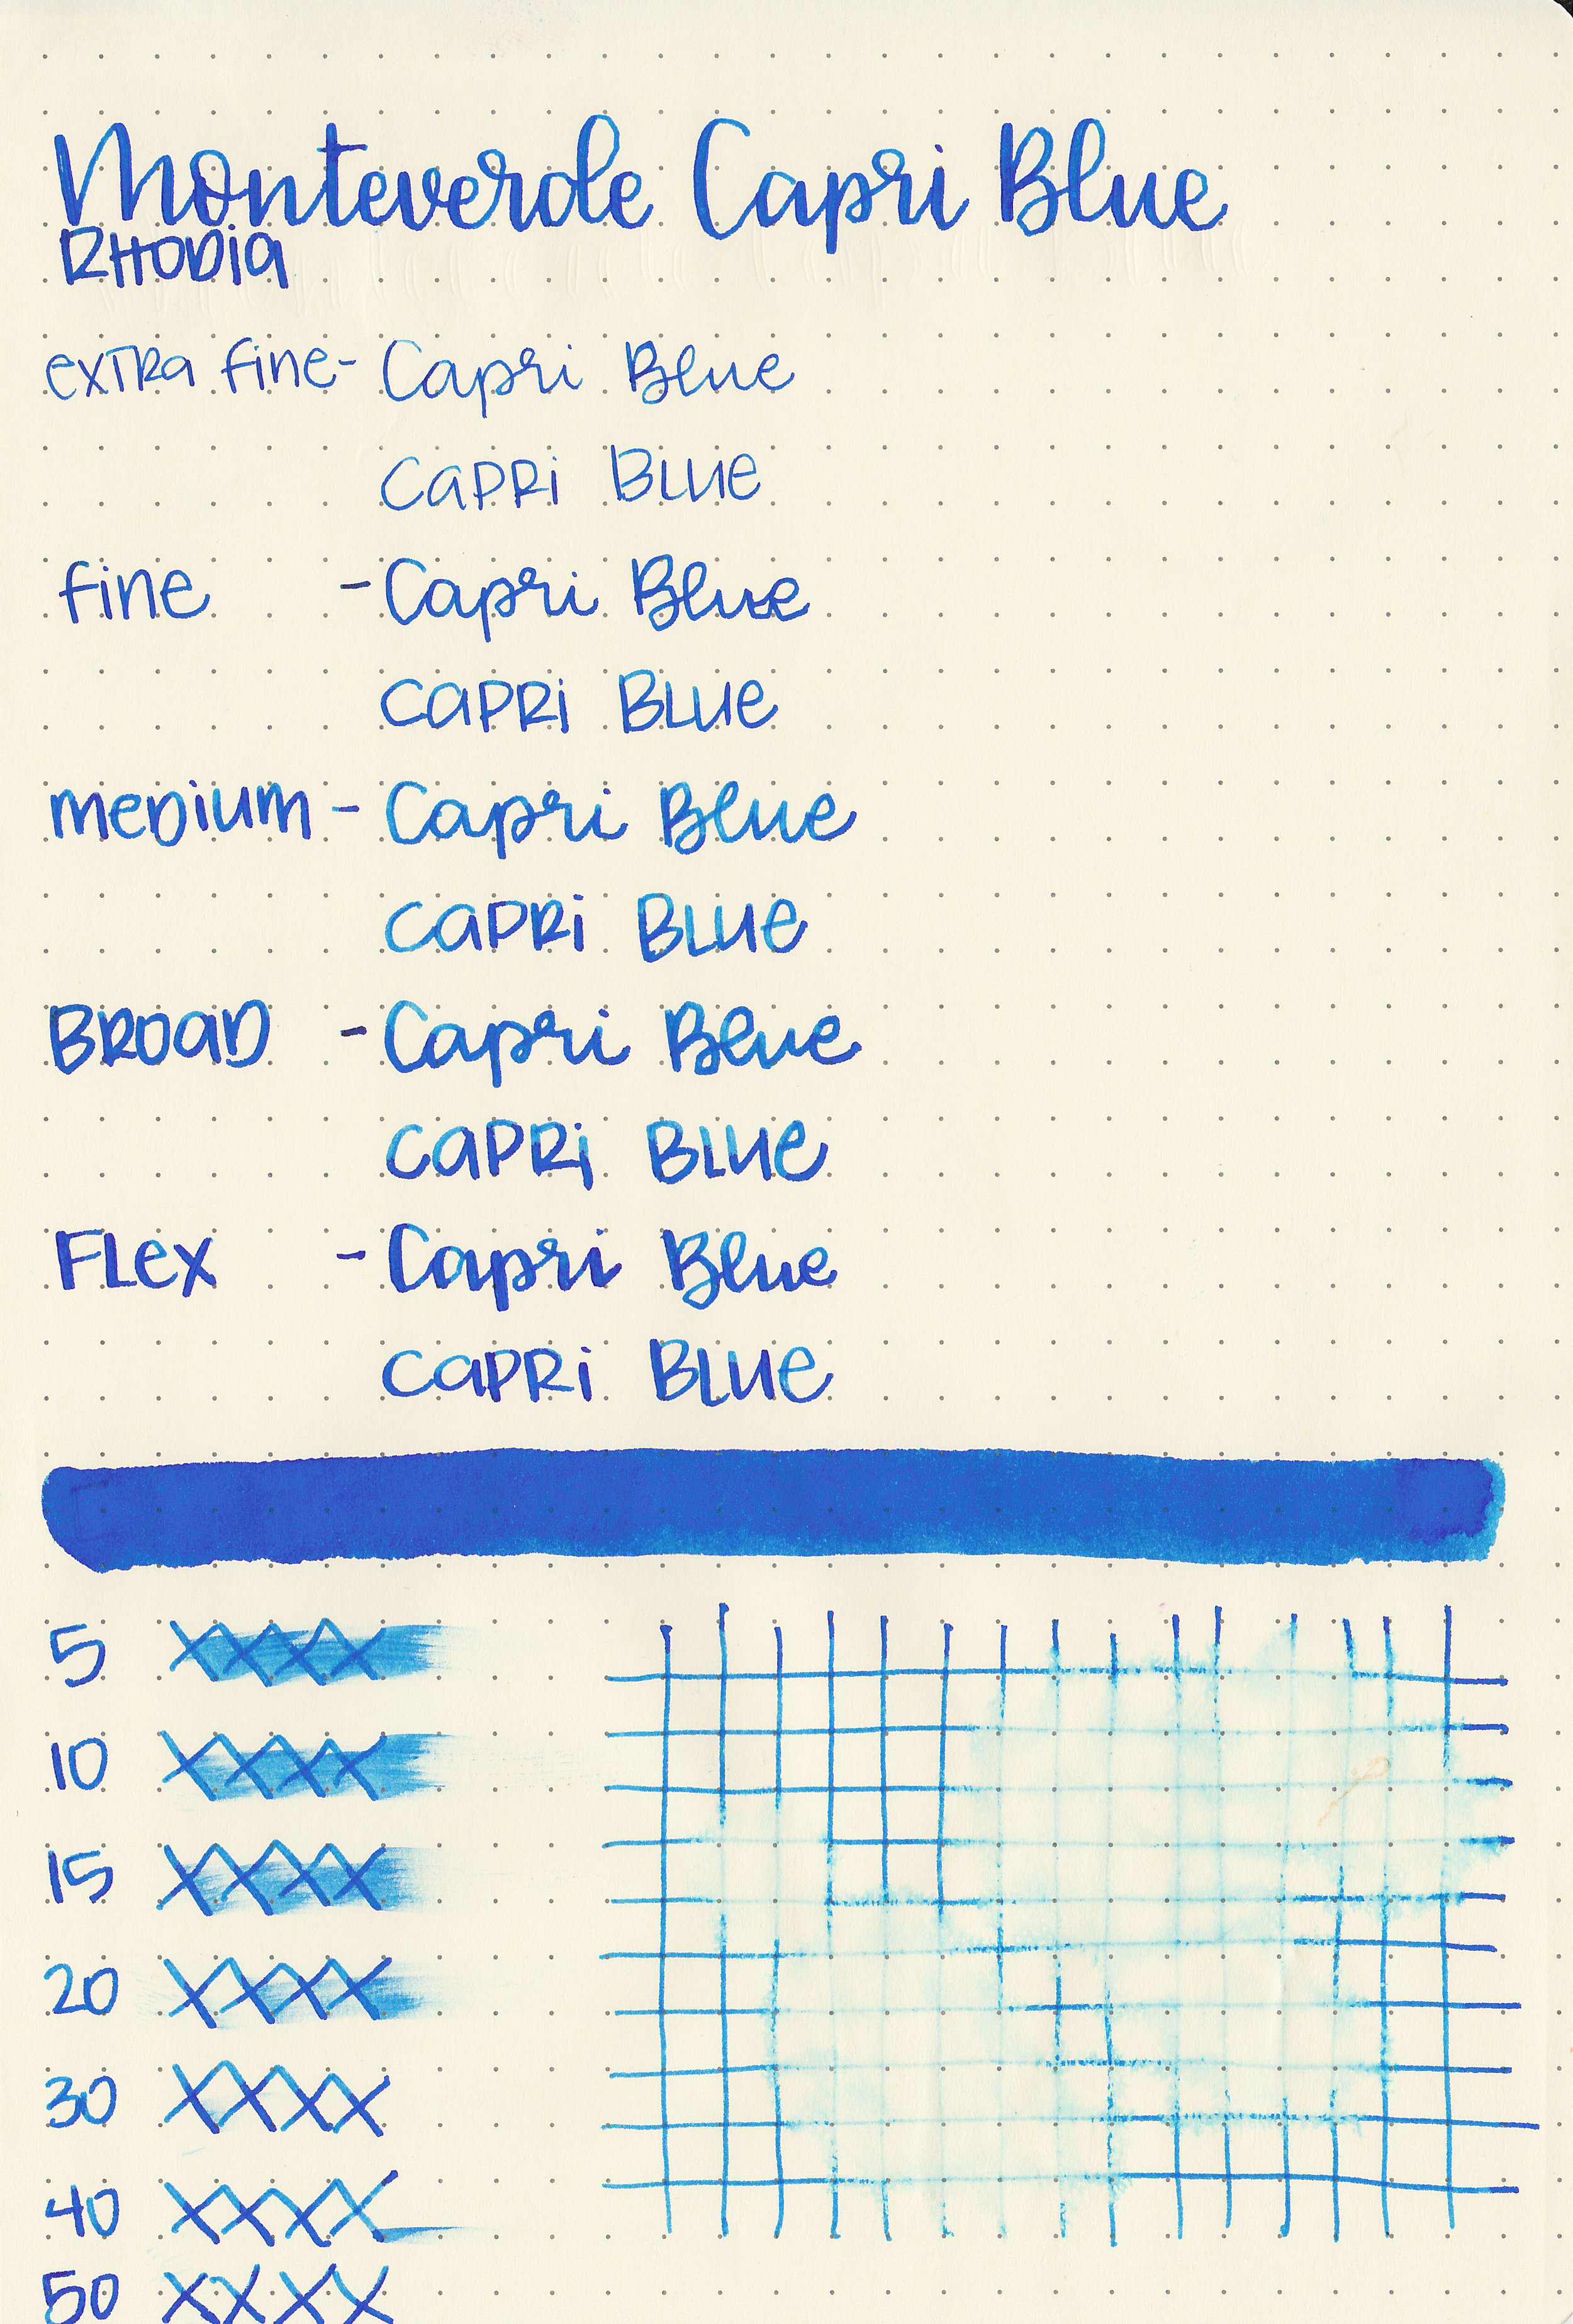 Monteverde Capri Blue
RHODIA
extra fine- Capri Blue
CAPRI BLUE
fine - Capri Blue
CAPRI BLUE
medium - Capri Blue
CAPRI BLUE
BROAD - Capri Blue
CAPRI BLUE
FLEX - Capri Blue
CAPRI BLUE
5 XXXX
10 XXXX
15 XXXX
20 XXXX
30 XXXX
40 XXXX
50 XXXX